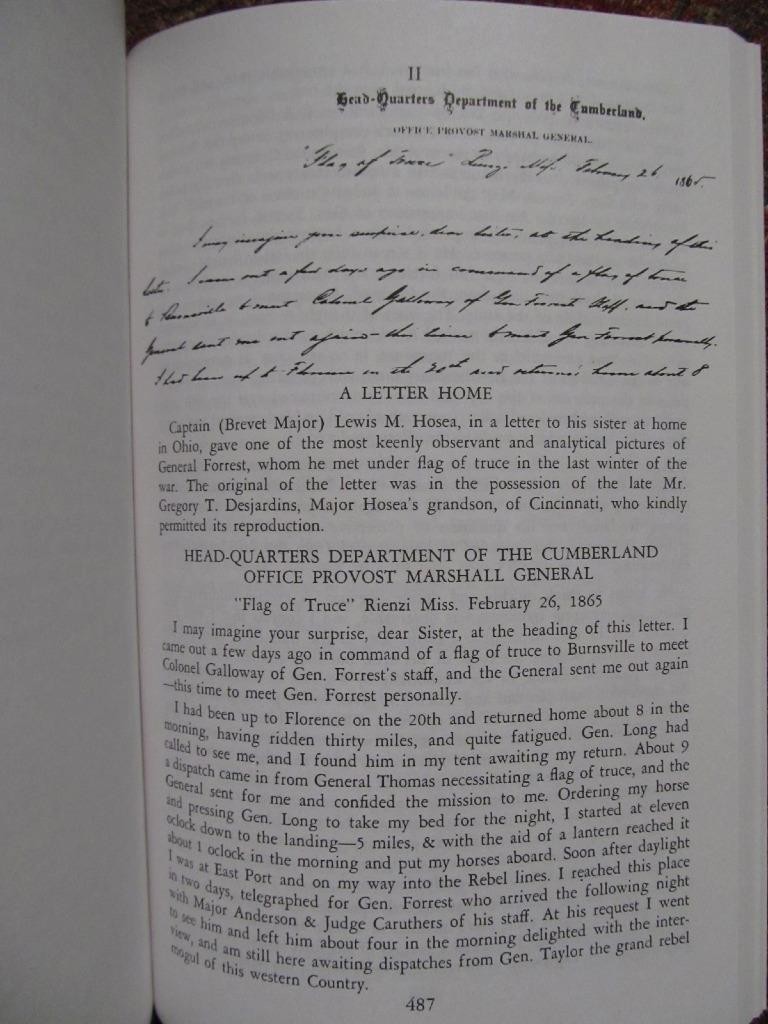 II
Head-Quarters Department of the Cumberland,
OFFICE PROVOST MARSHAL GENERAL.
"Flag of Truce" Rienzi Miss. February 26 1865.
I may imagine your surprise, dear Sister, at the heading of this
letter. I came out a few days ago in command of a flag of truce
to Burnsville to meet Colonel Galloway of Gen Forrest Staff, and the
General sent me out again—this time to meet Gen Forrest personally.
I had been up to Florence on the 20th and returned home about 8
A LETTER HOME
Captain (Brevet Major) Lewis M. Hosea, in a letter to his sister at home
in Ohio, gave one of the most keenly observant and analytical pictures of
General Forrest, whom he met under flag of truce in the last winter of the
war. The original of the letter was in the possession of the late Mr.
Gregory T. Desjardins, Major Hosea's grandson, of Cincinnati, who kindly
permitted its reproduction.
HEAD-QUARTERS DEPARTMENT OF THE CUMBERLAND
OFFICE PROVOST MARSHALL GENERAL
"Flag of Truce" Rienzi Miss. February 26, 1865
I may imagine your surprise, dear Sister, at the heading of this letter. I
came out a few days ago in command of a flag of truce to Burnsville to meet
Colonel Galloway of Gen. Forrest's staff, and the General sent me out again
—this time to meet Gen. Forrest personally.
I had been up to Florence on the 20th and returned home about 8 in the
morning, having ridden thirty miles, and quite fatigued. Gen. Long had
called to see me, and I found him in my tent awaiting my return. About 9
a dispatch came in from General Thomas necessitating a flag of truce, and the
General sent for me and confided the mission to me. Ordering my horse
and pressing Gen. Long to take my bed for the night, I started at eleven
oclock down to the landing—5 miles, & with the aid of a lantern reached it
about 1 oclock in the morning and put my horses aboard. Soon after daylight
I was at East Port and on my way into the Rebel lines. I reached this place
in two days, telegraphed for Gen. Forrest who arrived the following night
with Major Anderson & Judge Caruthers of his staff. At his request I went
to see him and left him about four in the morning delighted with the inter-
view, and am still here awaiting dispatches from Gen. Taylor the grand rebel
mogul of this western Country.
487